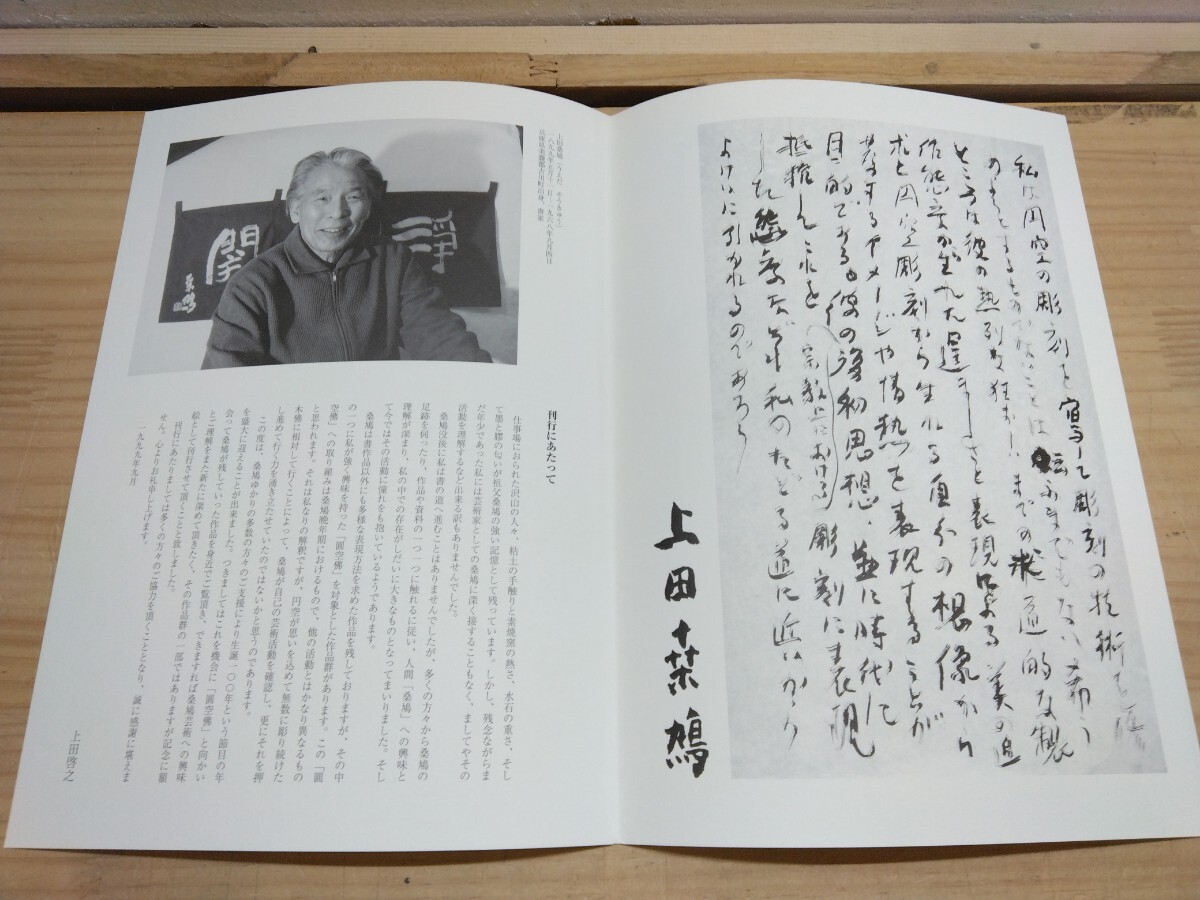 私は円空の彫刻を寫して彫刻の技術を
ものでないことは云ふまでもない希う
ところは彼の熱列な狂おしいまでの求道的な製
作態度が 逞ましさと表現による美の追
求と円空彫刻から生れる自分の想像から
するイメージや情熱を表現することが
目的である。彼の 思想・並に時代に
抵抗しこれを宗教上における彫刻に表現
した態度などが私のたどる道に近いから
よけいに引かれるのであろう
上田桑鳩
上田桑鳩（うえだ そうきゅう）
一八九九年五月十一日～一九六八年九月四日
兵庫県美嚢郡吉川町出身、書家
桑鳩
刊行にあたって
仕事場におられた沢山の人々、粘土の手触りと素焼窯の熱さ、水石の重さ、そし
て墨と膠の匂いが祖父桑鳩の強い記憶として残っています。しかし、残念ながらま
だ年少であった私には芸術家としての桑鳩に深く接することもなく、ましてやその
活動を理解するなど出来る訳もありませんでした。
桑鳩没後に私は書の道へ進むことはありませんでしたが、多くの方々から桑鳩の
足跡を伺ったり、作品や資料の一つ一つに触れるに従い、人間「桑鳩」への興味と
理解が深まり、私の中での存在がしだいに大きなものとなってまいりました。そし
て今ではその活動に憧れをも抱いているようであります。
桑鳩は書作品以外にも多様な表現方法を求めた作品を残しておりますが、その中
の一つに私が強く興味を持った「圓空佛」を対象とした作品群があります。この「圓
空佛」への取り組みは桑鳩晩年期におけるもので、他の活動とはかなり異なるもの
と思われます。それは私なりの解釈ですが、円空が思いを込めて無数に彫り続けた
木佛に相対して行くことによって、桑鳩が自己の芸術活動を確認し、更にそれを押
し進めて行く力を湧き立たせていたのではないかと思うのであります。
この度は、桑鳩ゆかりの多数の方々のご支援により生誕一〇〇年という節目の年
を盛大に迎えることが出来ました。つきましてはこれを機会に「圓空佛」と向かい
会って桑鳩が残していった作品を身近でご覧頂き、できますれば桑鳩芸術への興味
とご理解をまた新たに深めて頂きたく、その作品群の一部ではありますが記念に額
絵として刊行させて頂くことと致しました。
刊行にあたりましては多くの方々のご協力を頂くこととなり、誠に感謝に堪えま
せん。心よりお礼申し上げます。
一九九九年九月
上田啓之